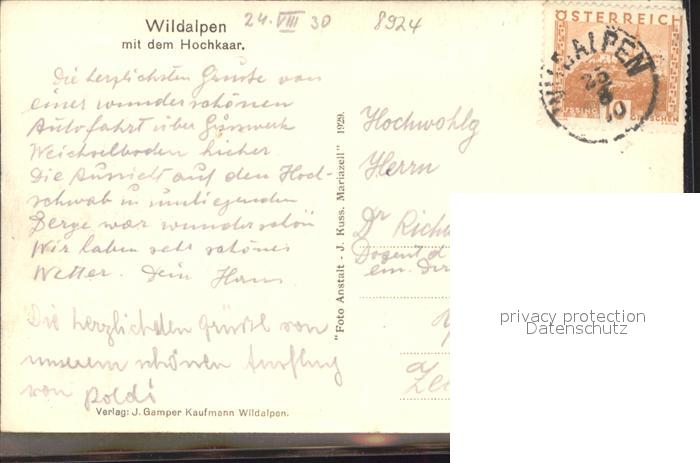 Wildalpen
mit dem Hochkaar.
24.VIII 30
8924
ÖSTERREICH
WILDALPEN
Die herzlichsten Grüsse von
einer wunderschönen
Autofahrt über Gusswerk
Weichselboden hieher.
Die Aussicht auf den Hoch-
schwab u umliegenden
Berge war wunderschön
Wir haben sehr schönes
Wetter. Dein Hans
Die herzlichsten Grüsse von
unserem schönen Ausflug
von Poldi
Verlag: J. Gamper Kaufmann Wildalpen.
"Foto Anstalt - J. Kuss. Mariazell" 1929.
Hochwohlg
Herrn
Dr Richa
Dozent d
em. Dir
privacy protection
Datenschutz